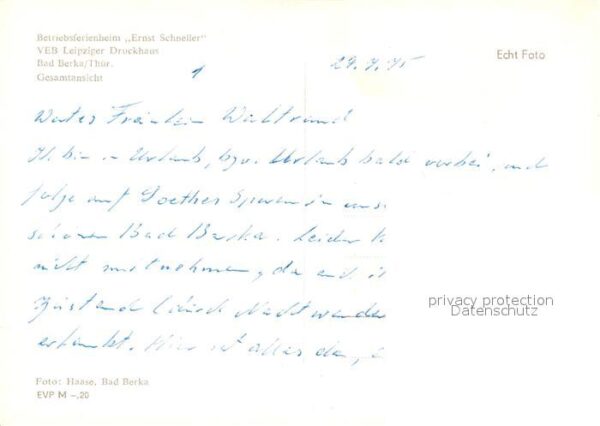 Betriebsferienheim „Ernst Schneller"
VEB Leipziger Druckhaus
Bad Berka/Thür.
Gesamtansicht
Echt Foto
Fräulein Waltraud
bin in Urlaub, bzw. Urlaub bald vorbei, und
folge auf Goethes Spuren in
schönen Bad Berka. Leider
nicht mitnehmen, da
erlaubt. Hier ist alles da,
privacy protection
Datenschutz
Foto: Haase, Bad Berka
EVP M -.20